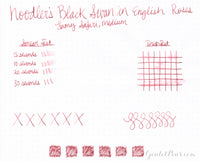 Noodler's Black Swan in English Roses
Lamy Safari, medium
Smear Test
Drip Test
5 seconds
10 seconds
20 seconds
30 seconds
X X X X X X
GouletPens.com